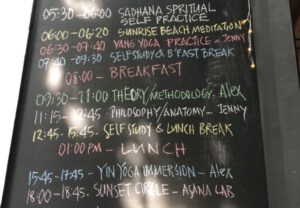 05:30 - 06:00 SADHANA SPRITUAL
SELF PRACTICE
06:00 - 06:20 SUNRISE BEACH MEDITATION
06:30 - 07:40 YANG YOGA PRACTICE w. JENNY
07:40 - 09:30 SELFSTUDY & B'FAST BREAK
08:00 - BREAKFAST
09:30 - 11:00 THEORY/METHODOLOGY. Alex
11:15 - 12:45 PHILOSOPHY/ANATOMY - JENNY
12:45 - 15:45 - SELF STUDY & LUNCH BREAK
01:00 PM - LUNCH
15:45 - 17:45 - YIN YOGA IMMERSION - Alex
18:00 - 18:45. SUNSET CIRCLE - ASANA LAB